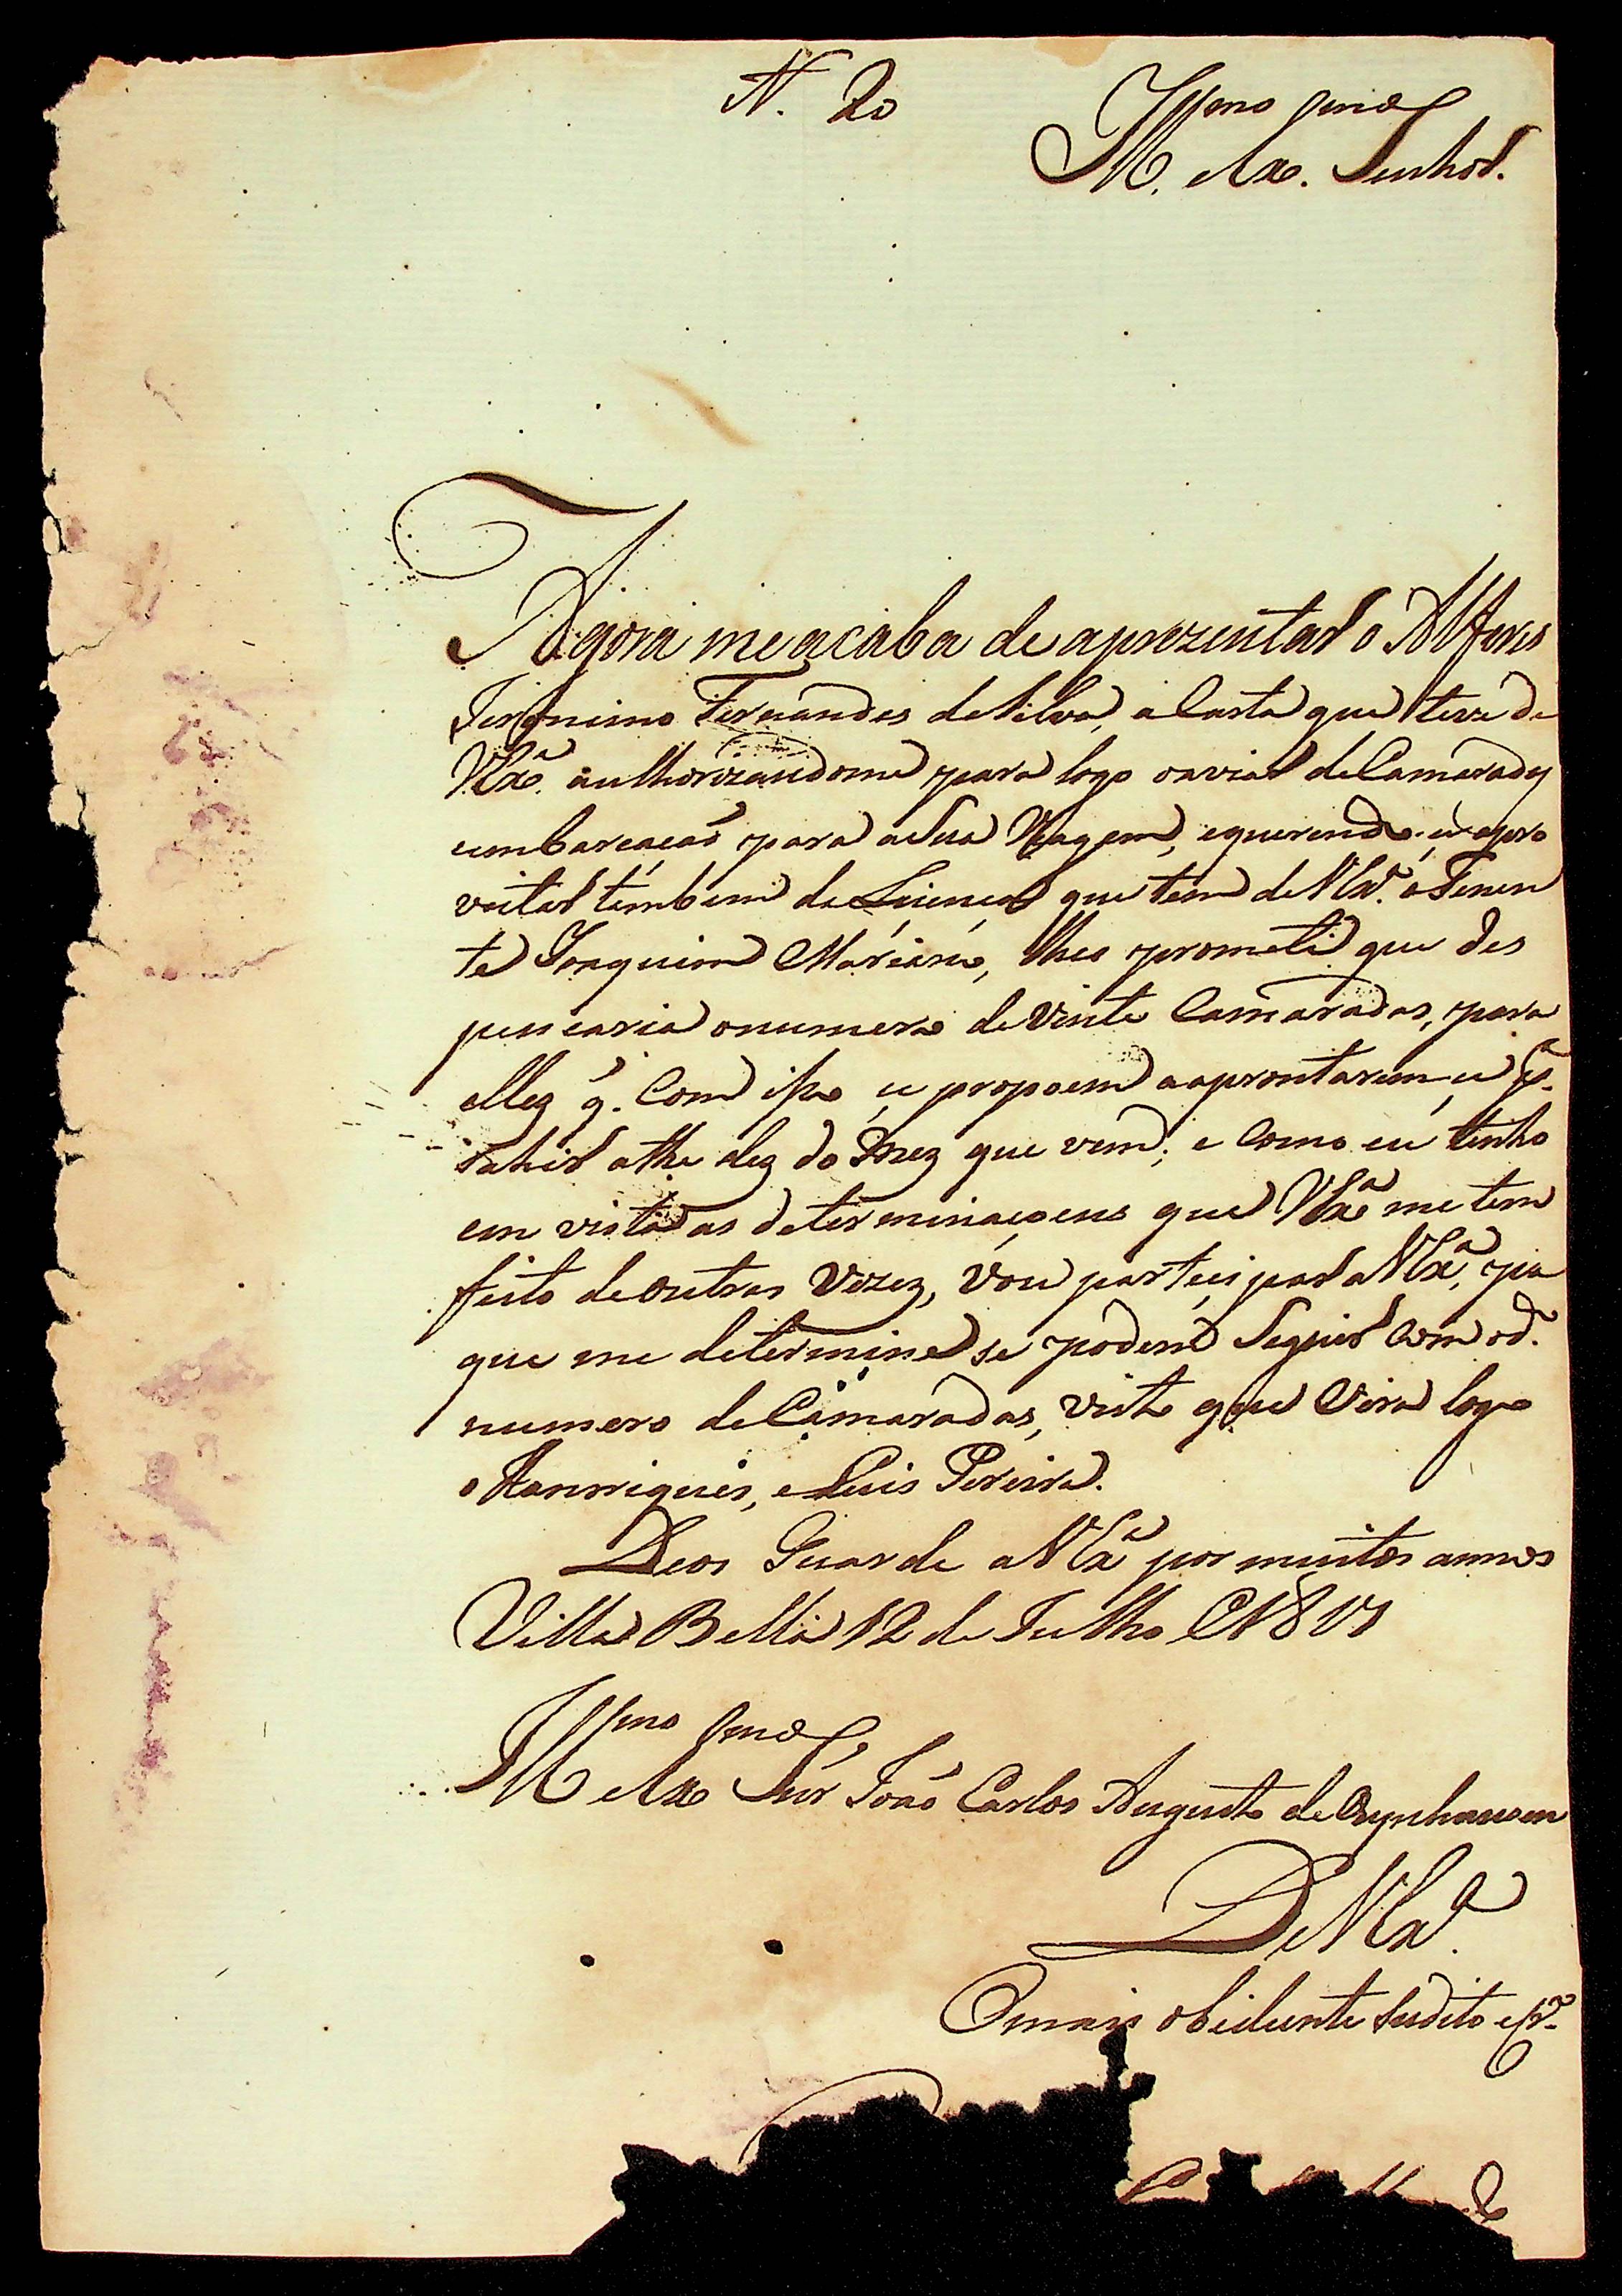 N. 20
Ill.mo e Ex.mo Senhor.
Agora me acaba de aprezentar o Alferes
Jeronimo Fernandes da Silva, a Carta que teve de
VEx.a authorizandome para logo o aviar de Camaradas
e embarcacaõ para a Sua Viagem, e querendo-se apro
veitar tambem da Licença que tem de VEx.a o Tenen
te Joaquim Mariano, lhes prometi que des
pencaria o numero de Vinte Camaradas, para
elles q. Com isso se propoem a aprontarem-se p.a
sahir athe dez do Mez que vem; e Como eu tenho
em vista as determinaçoens que VEx.a me tem
feito de outras Vezes, Vou participar a VEx.a, pa
que me determine se podem Seguir Com o d.o
numero de Camaradas, visto que Vira logo
o Hanrriques, e Luis Pereira.
Deos Guarde a VEx.a por muitos annos
Villa Bella 12 de Julho
Ill.mo e Ex.mo Snr João Carlos Augusto de Oeynhausen
De VEx.a
O mais obidiente Sudito e